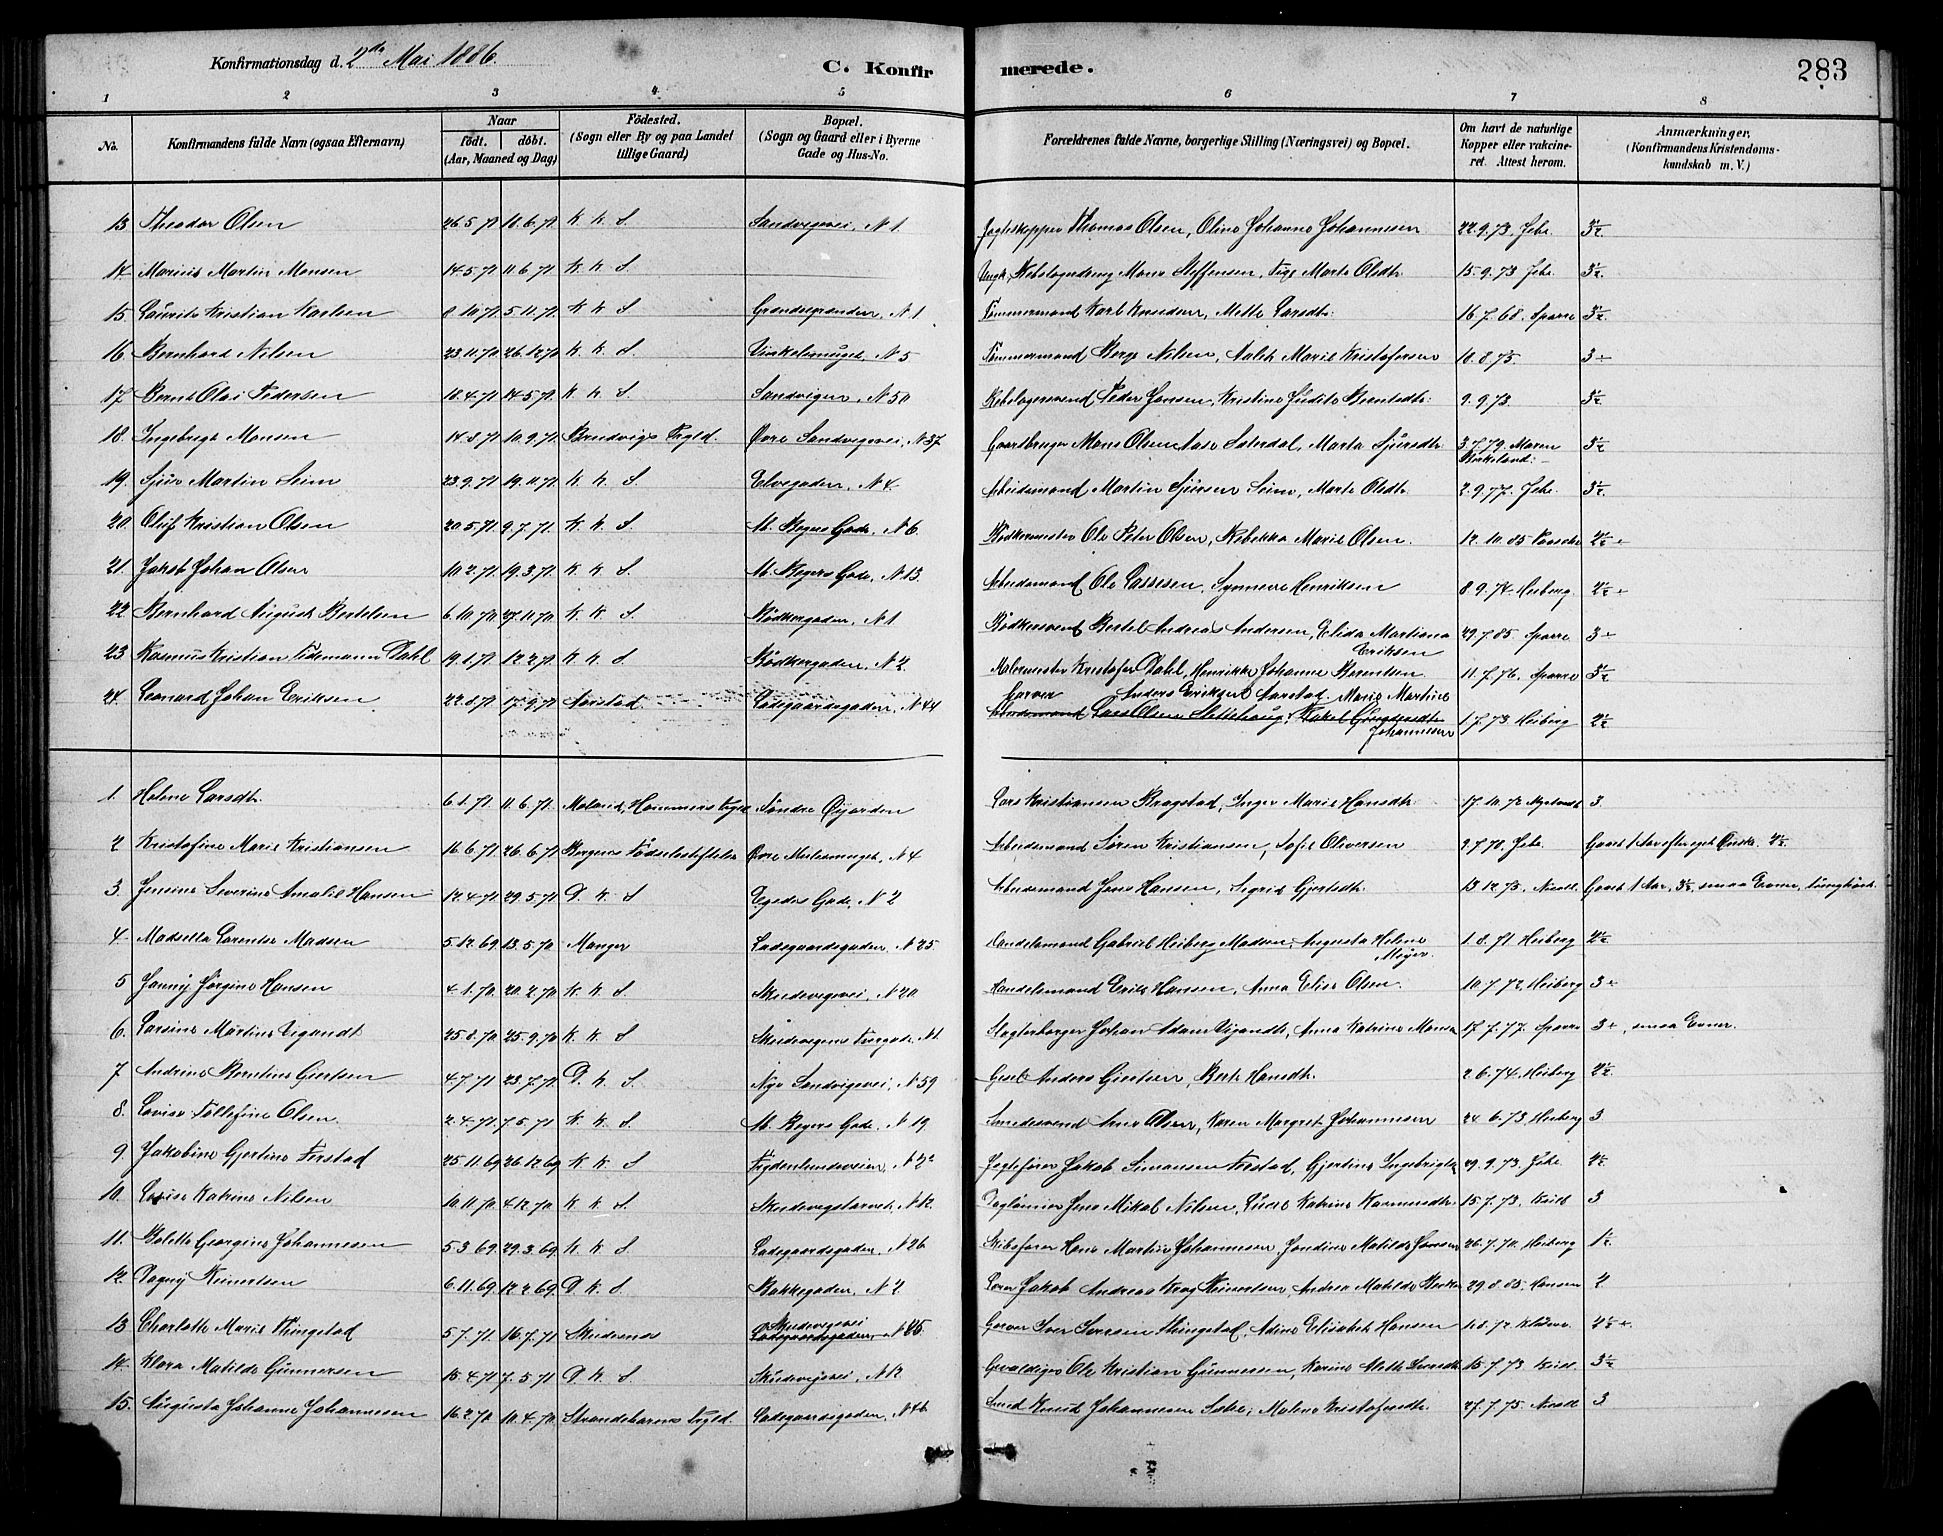 Konfirmationsdag d. 2de Mai 1886. C. Konfirmerede. 283
1 2 3 4 5 6 7 8
No. Konfirmandens fulde Navn (ogsaa Efternavn) Naar födt. döbt. (Aar, Maaned og Dag) Födested. (Sogn eller By og paa Landet tillige Gaard) Bopæl. (Sogn og Gaard eller i Byerne Gade og Hus-No. Forældrenes fulde Navne, borgerlige Stilling (Næringsvei) og Bopæl. Om havt de naturlige Kopper eller vakcineret. Attest herom. Anmærkninger, (Konfirmandens Kristendomskundskab m. V.)
13 Theodor Olsen 26.5.71 10.6.71 K. K. S. Sandvigsvei, N 1 Thomas Olsen, Oline Johanne Johannesen 22.9.73. Jebe. 3½
14. Marius Martin Monsen 14.5.71 11.6.71 K. K. S. Mons Steffensen, Marta Olsdtr. 15.9.73 Jebe. 3½
15. Laurits Kristian Karlsen 8.10.71 5.11.71 K. K. S N 1 Tömmermand Karl Knudsen, Mette Larsdtr. 16.7.68. Sparre 3½
16. Bernhard Nilsen 23.11.70 26.12.70 K. K. S. Vinkelsmuget, N 5 Tömmermand Nilsen, Marie Kristofersen 10.8.75. 3+
17. Bernt Olai Pedersen 10.4.71 14.5.71 K. K. S Sandvigen, N 50 Rebslagersvend Peder Jansen, Kristine Judite Berntsdtr. 9.9.73 3½
18. Ingebrigt Monsen 14.8.71 10.9.71 Bruvigs Prgld. Övre Sandvigsvei, N 37 Gaardbruger Mons Olsen Marta Sjursdtr. 3.7.79. Maren Birkeland. 3½
19. Sjur Martin Seim 23.9.71 19.11.71 K. K. S. Elvegaden, N 4. Arbeidsmand Martin Sjursen Seim, Marta Olsdtr. 2.9.77. Jebe. 3½
20 Oluf Kristian Olsen 20.5.71 9.7.71. K. K. S. M. Beyers Gade, N 6. Bödkermester Ole Peter Olsen, Rebekka Marie Olsen. 12.10.85 Paasche 2½+
21. Jakob Johan Olsen 10.2.71. 19.3.71. K. K. S. M. Beyers Gade, N 13. Arbeidsmand Ole Larsen, Synneve Henriksen 8.9.74. Heiberg 2½+
22 Bernhard August Bertelsen 6.10.70 27.11.70 K. K. S Bödkergaden, N 1 Bödkersvend Bertel Andreas Andersen, Elida Martiana Eriksen 29.7.85 Sparre 3+
23 Rasmus Kristian Tidemann Dahl 19.1.71 12.2.71 K. K. S Bödkergaden, N 2 Malermester Kristofer Dahl, Henrikke Johanne Berentsen 11.7.76. Sparre 3½
24. Leonard Johan Eriksen 22.8.71 17.9.71 Aarstad Ladegaardsgaden, N 44 Garver Anders Eriksen Aarstad. Marie Martine Johannesen Arbeidsmand Lars Olsen 1.7.73. Heiberg 2½
1. Helene Larsdtr. 6.1.71. 11.6.71. Hammers Prgld Söndre Öyjorden Lars Kristiansen Ragstad, Inger Marie Hansdtr. 17.10.72 3.
2 Kristofine Marie Kristiansen 16.6.71. 26.6.71 Bergens Födselsstiftelse Övre N 4 Arbeidsmand Sören Kristiansen, Sofie Oliversen 9.7.78. Jebe. Gaaet 1 Aar efter eget Önske. 2½
3. Jensine Severine Amalie Hansen 12.4.71 29.5.71 D. K. S Egedes Gade, N 2 Arbeidsmand Jens Hansen, Sigrid Gjertsdtr. 13.12.73. Nicoll. Gaaet 1 Aar, 3½, smaa Evner, tunghört.
4. Madsella Lorentse Madsen 5.12.69 13.5.70 Manger Ladegaardsgaden, N 25. Handelsmand Gabriel Heiberg Madsen, Augusta Helene Meyer. 1.8.71. Heiberg 2½
5 Janny Jörgine Hansen 4.1.70. 20.2.70 K. K. S. Skudevigsvei, N 20 Handelsmand Erik Hansen, Anna Elise Olsen. 10.7.72. Heiberg 3+
6. Larsine Martine Vigandt 25.8.70 25.9.70 K. K. S Skudevigens N 1. Slagterborger Johan Adam Vigandt, Anna Katrine Monsen 17.7.77. Sparre 3+, smaa Evner.
7. Andrine Berntine Giertsen 4.7.71 23.7.71 D. K. S. Nye Sandvigsvei, N 59 Anders Giertsen, Berte Hansdtr. 2.6.74. Heiberg 2½
8. Lovise Tollefine Olsen 2.4.71. 7.5.71 K. K. S. M. Beyers Gade. N 19. Smedesvend Arne Olsen, Karen Margret Johannesen 24.6.73. Heiberg 3
9. Jakobine Gjertine Ferstad 25.11.69 26.12.69 K. K. S N 2 Jegtefører Jakob Simonsen Ferstad, Gjertine 29.9.73. Jebe 2½
10. Lovise Katrine Nilsen 10.11.70 4.12.70 K. K. S. N 12. Daglönner Jens Mikal Nilsen, Katrine Rasmusdtr. 15.7.73. 3
11. Bolette Georgine Johannesen 5.3.69. 29.3.69 K. K. S. Ladegaardsgaden, N 26 Skibsfører Hans Martin Johannesen, Jondine Matilde 26.7.70. Heiberg 1½
12. Dagny Reinertsen 6.11.69. 12.2.69 D. K. S. Bakkegaden, N 2 Jakob Andreas Krog Reinertsen, Andrea Matilde 29.8.85. Hansen 2
13. Charlotte Marie Thingstad 5.7.71. 16.7.71. Skudenes Skudevigsvei Ladegaardsgaden N 45. Garver Iver Iversen Thingstad, Adine Elisabet Hansen 1.8.72. 2½+
14. Klara Matilde Gunnersen 15.4.71 7.5.71 D. K. S. Skudevigsvei, N 12 Ole Kristian Gunnersen, Karine Mette 15.7.73. 3½
15. Augusta Johanne Johannesen 16.2.70 10.4.70 Strandebarms Prgld. Ladegaardsgaden, N 46 Smed Knud Johannesen Malene Kristofersdtr. 27.7.75. Nicoll 3